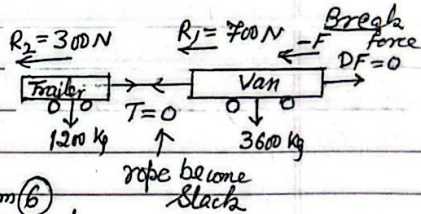 Break
R₂ = 300N R₁ = 700N -F force
DF = 0
Trailer Van
T = 0
1200 kg 3600 kg
rope become
Slack
m ⑥